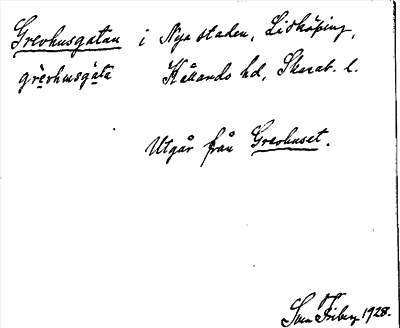 Grevhusgatan i Nya staden, Lidköping,
grèvhusgàta Kållands hd, Skarab. l.
Utgår från Grevhuset.
Sven Friberg 1928.